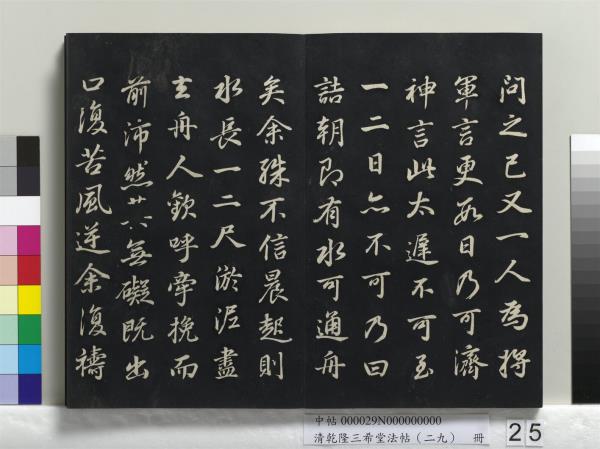 問之已又一人為將
軍言更數日乃可濟
神言此太遲不可至
一二日亦不可乃曰
詰朝即有水可通舟
矣余殊不信晨起則
水長一二尺淤泥盡
去舟人歡呼牽挽而
前沛然無礙既出
口復苦風逆余復禱
中帖 000029N000000000
清乾隆三希堂法帖(二九) 冊
25